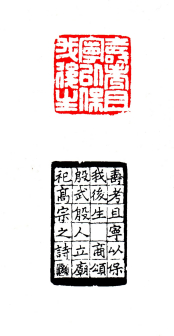 壽考且
寧㠯保
我後生
壽考且寧以保
我後生 商頌
殷武殷人立廟
祀高宗之詩